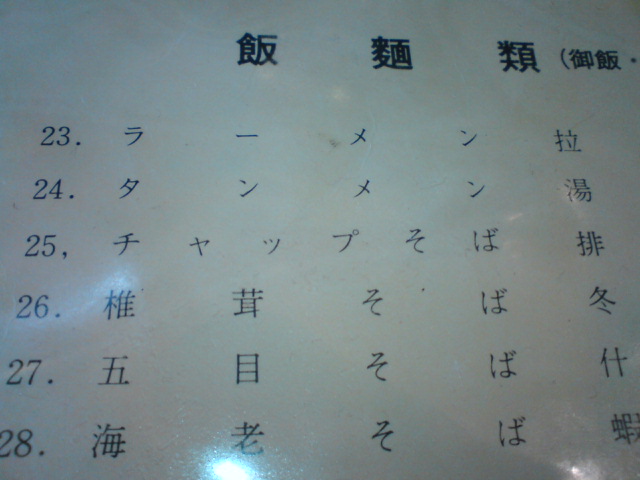 飯麺類(御飯・
23. ラーメン 拉
24. タンメン 湯
25, チャップそば 排
26. 椎茸そば 冬
27. 五目そば 什
28. 海老そば 蝦